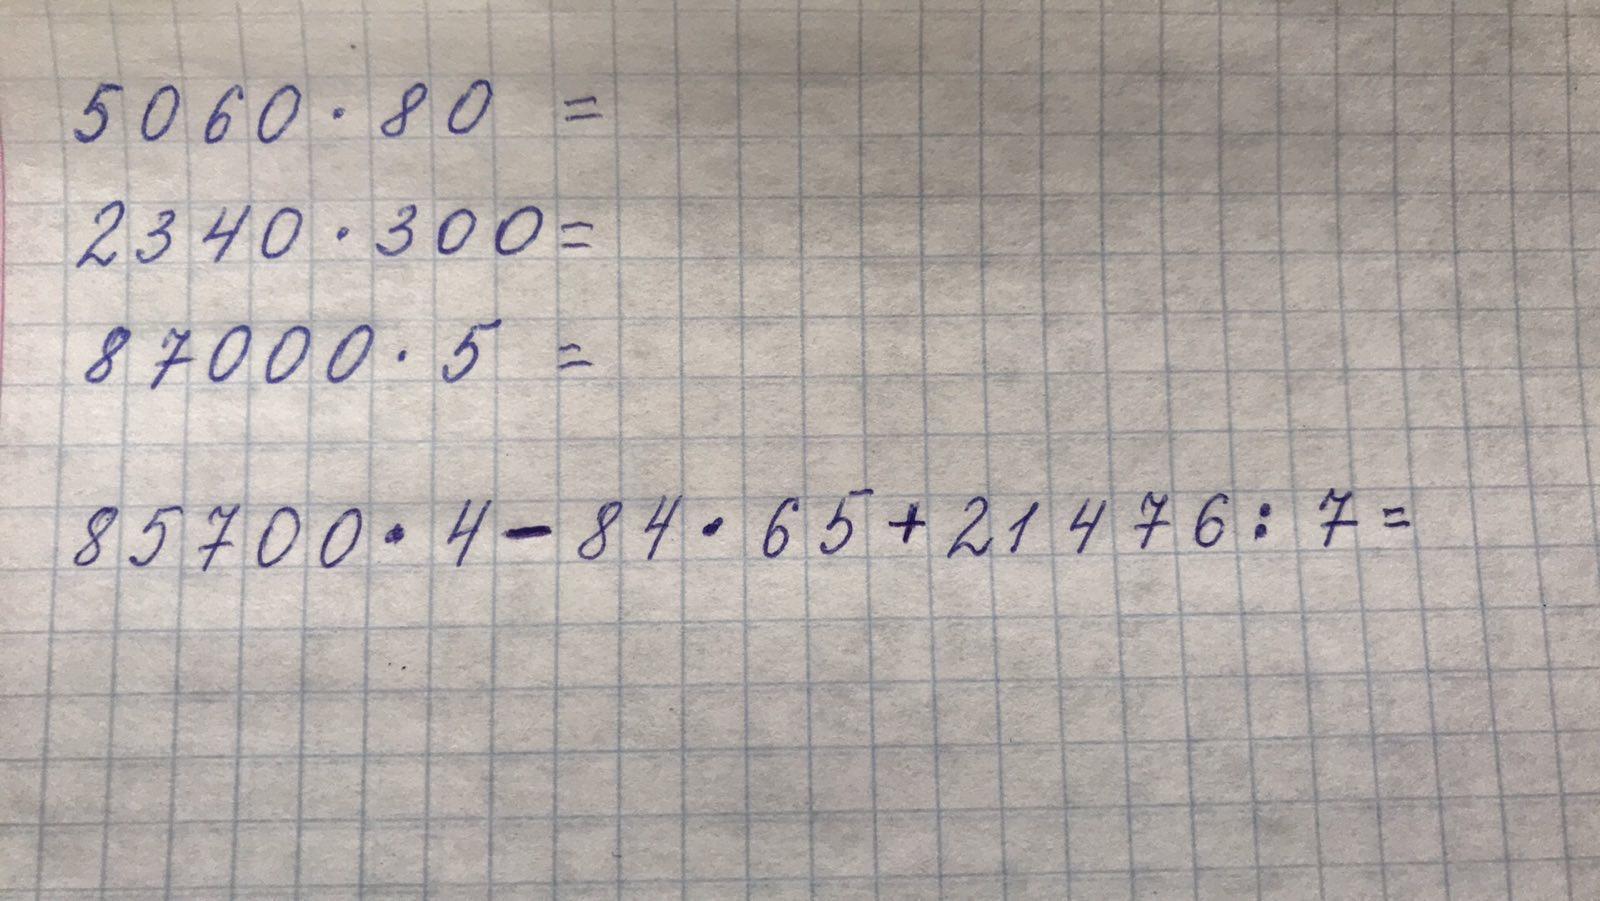 5060·80 =
2340·300=
87000·5 =
85700·4-84·65+21476:7=